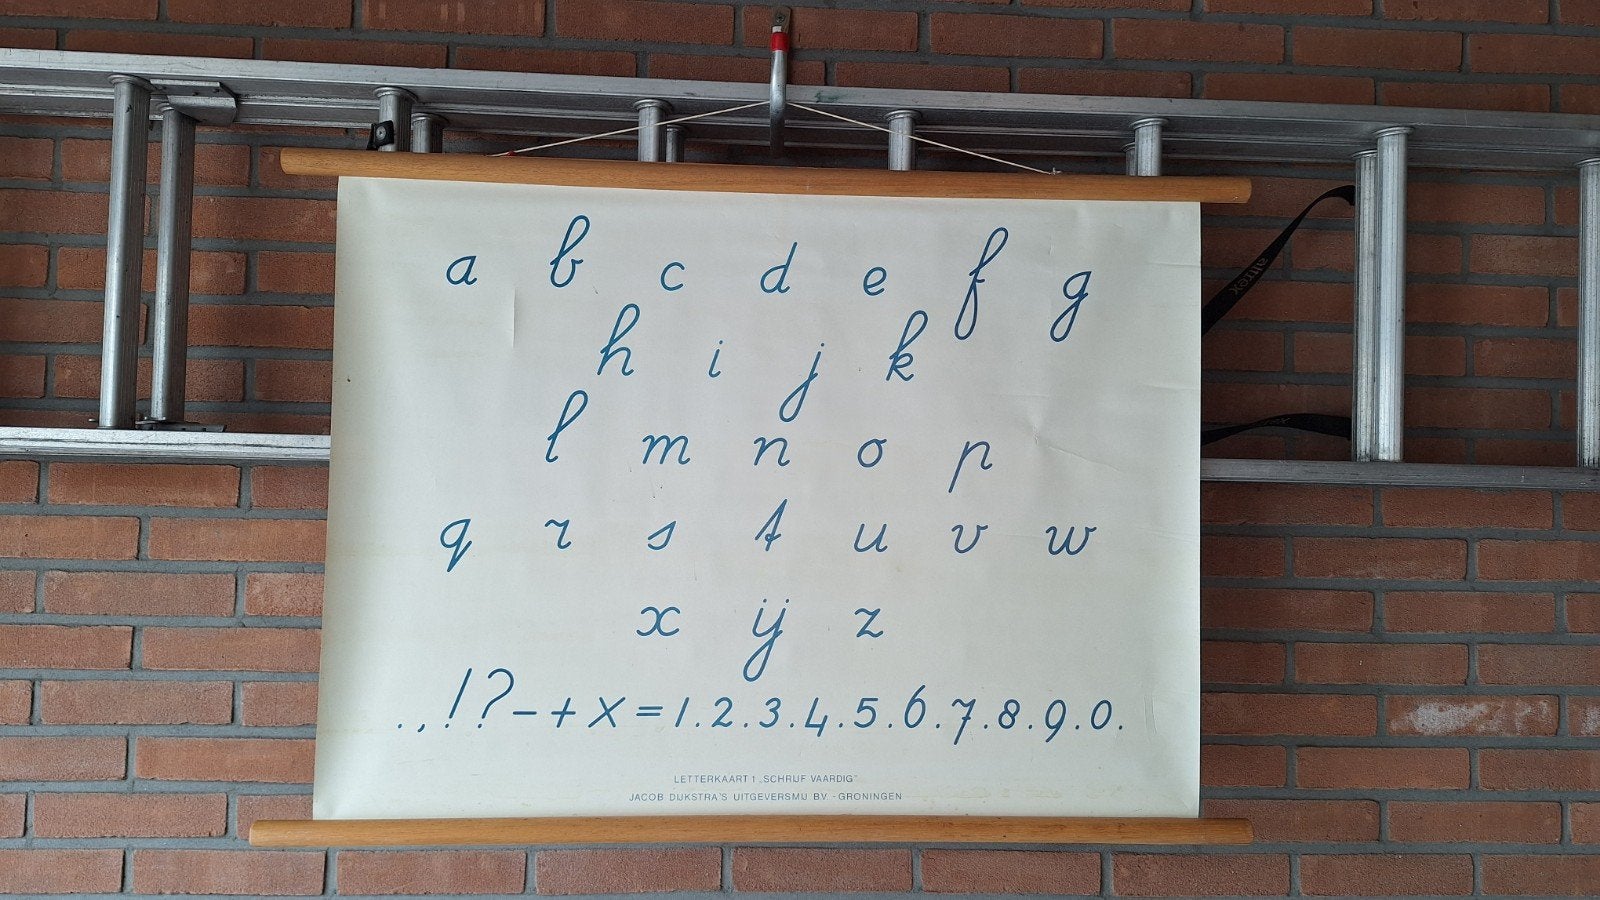 a b c d e f g
h i j k
l m n o p
q r s t u v w
x ij z
.,!?-+x=1.2.3.4.5.6.7.8.9.0.
LETTERKAART 1 „SCHRIJF VAARDIG"
JACOB DIJKSTRA'S UITGEVERSMIJ B.V. - GRONINGEN
altrex